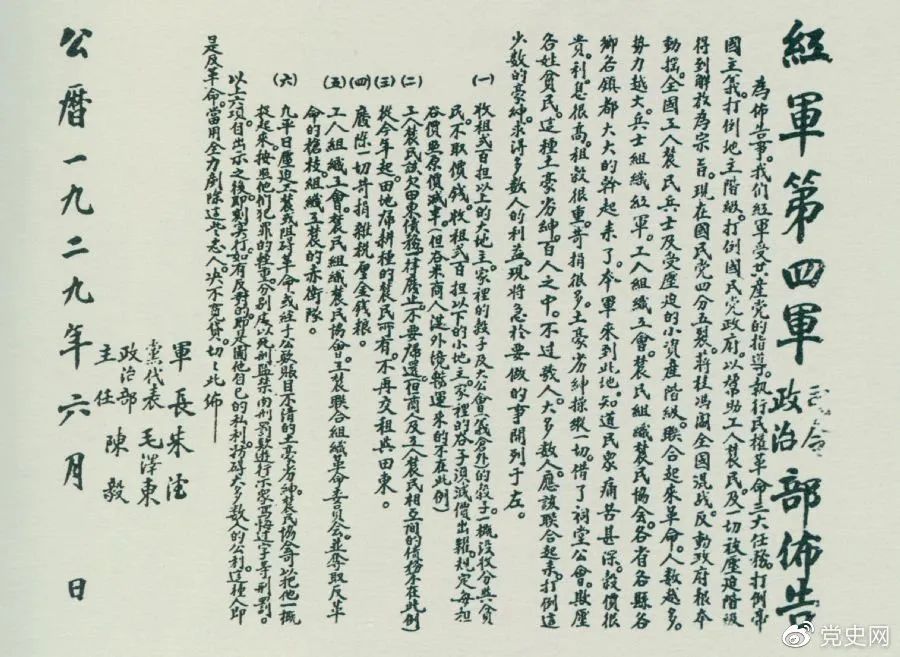 紅軍第四軍司令政治部佈告
為佈告事。我們紅軍受共產黨的指導。執行民權革命三大任務。打倒帝
國主義。打倒地主階級。打倒國民党政府。以幫助工人農民。及一切被壓迫階級
得到解放為宗旨。現在國民黨四分五裂。蔣桂馮閻全國混战。反動政府根本
動搖。全國工人農民兵士及受壓迫的小資產階級。聯合起來革命。人數越多。
勢力越大。兵士組織紅軍。工人組織工會。農民組織農民協会。各省各縣各
鄉各鎮都大大的幹起來了。本軍來到此地。知道民眾痛苦甚深。穀價很
貴。利息很高。租穀很重。苛捐很多。土豪劣紳操縱一切。借了祠堂公會。欺壓
各姓貧民。這種土豪劣紳。百人之中。不过數人。大多數人。應該联合起來。打倒這
少數的豪紳。求得多數人的利益。現將急於要做的事開列于左。
(一) 收租弍百担以上的大地主。家裡的穀子及大公會(義倉外)的穀子。一概没收分與貧
民。不取價錢。收租弍百担以下的小地主。家裡的谷子。須減價出糶。規定每担
谷價照原價減半。(但谷米商人從外境輸運來的不在此例)
(二) 工人農民該欠田東債務。一律廢止。不要歸還。(但商人及工人農民相互间的債務不在此例)
(三) 從今年起。田地歸耕種的農民所有。不再交租與田東。
(四) 廢除一切苛捐雜税厘金錢粮。
(五) 工人組織工會。農民組織農民協會。工農联合組織革命委員会。並奪取反革
命的槍枝。組織工農的赤衛隊。
(六) 凡平日壓迫工農或阻碍革命。或经手公欵賬目不清的土豪劣紳。農民協會可以把他一概
捉起來。按照他们犯罪的輕重。分别處以死刑監禁肉刑罰款遊行示眾写悔过字等刑罰。
以上六項。自出示之後。即刻实行。如有反對的。即是圖他自己的私利。妨碍大多数人的公利。這種人即
是反革命。當用全力剷除這些惡人。决不寬贷。切切此佈
軍長朱德
黨代表毛澤東
政治部主任陳毅
公曆一九二九年六月 日
党史网